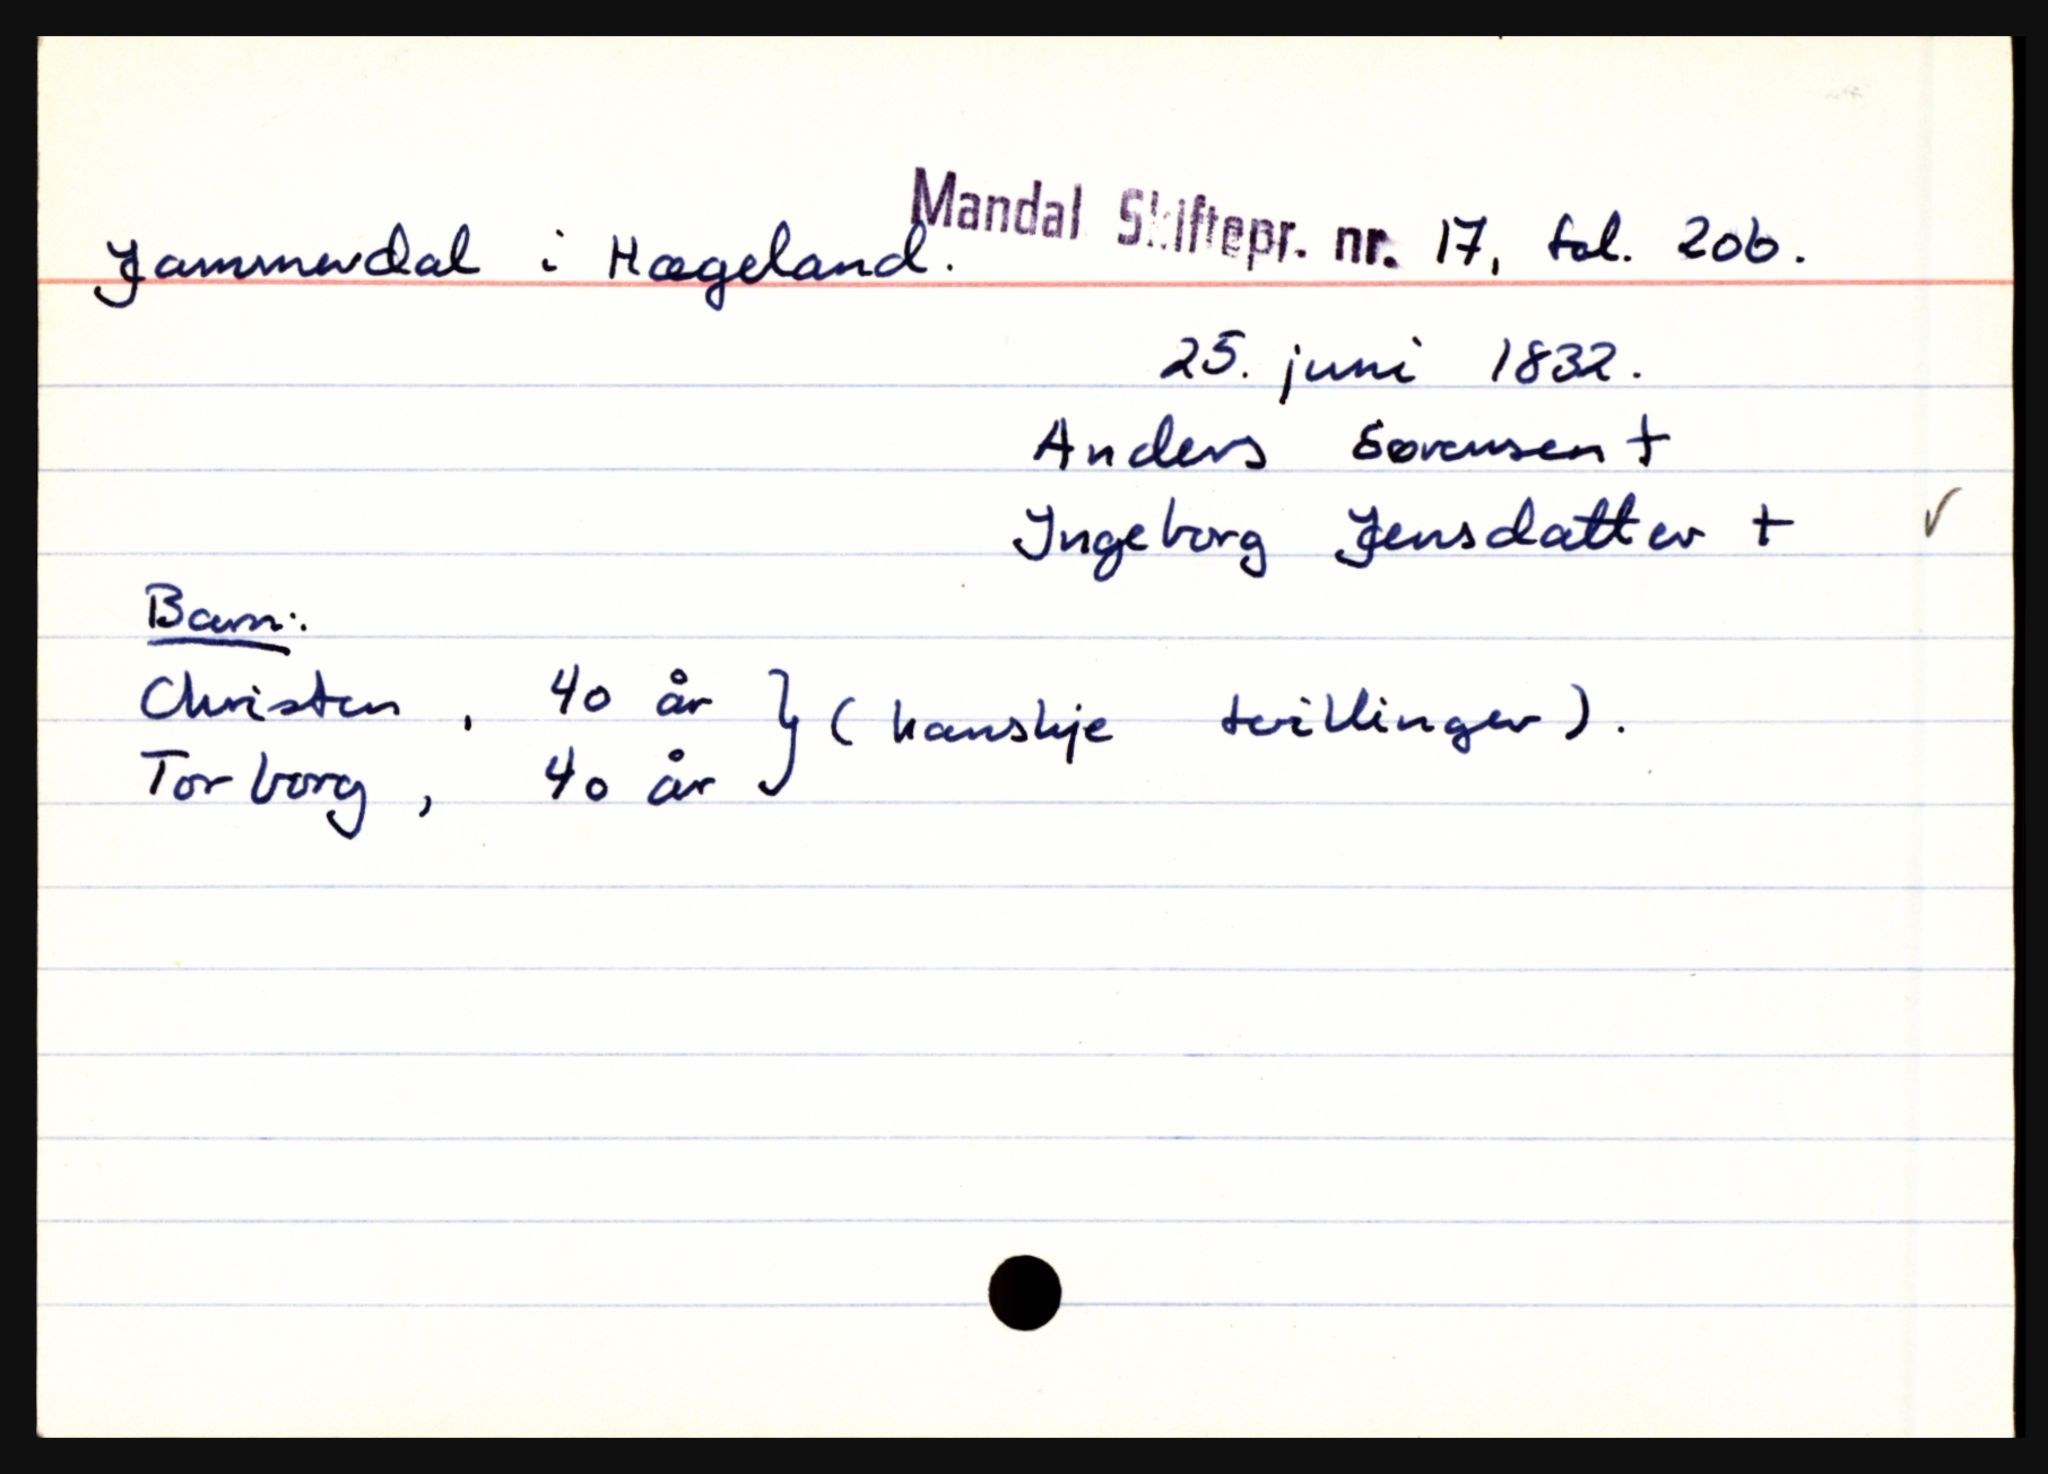 Jammerdal i Hægeland. Mandal Skiftepr. nr. 17, fol. 20b.
25. juni 1832.
Anders Sørensen †
Ingeborg Jensdatter † ✓
Barn:
Christen, 40 år } (kanskje tvillinger).
Torborg, 40 år